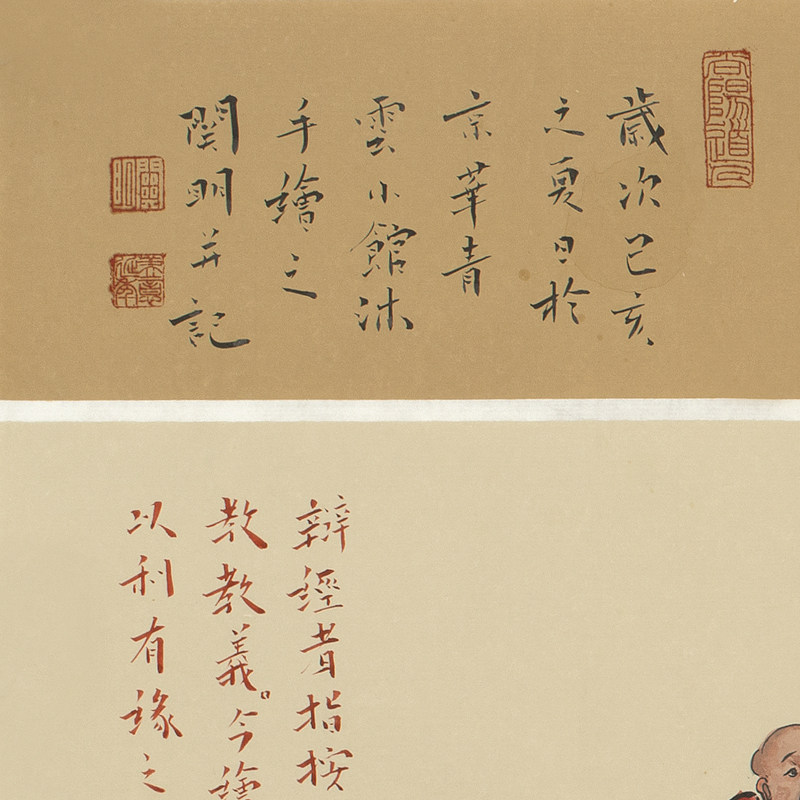 歲次己亥
之夏日於
京華青
雲小館沐
手繪之
閔明并記
辯經者指按
教教義。今繪
以利有緣之